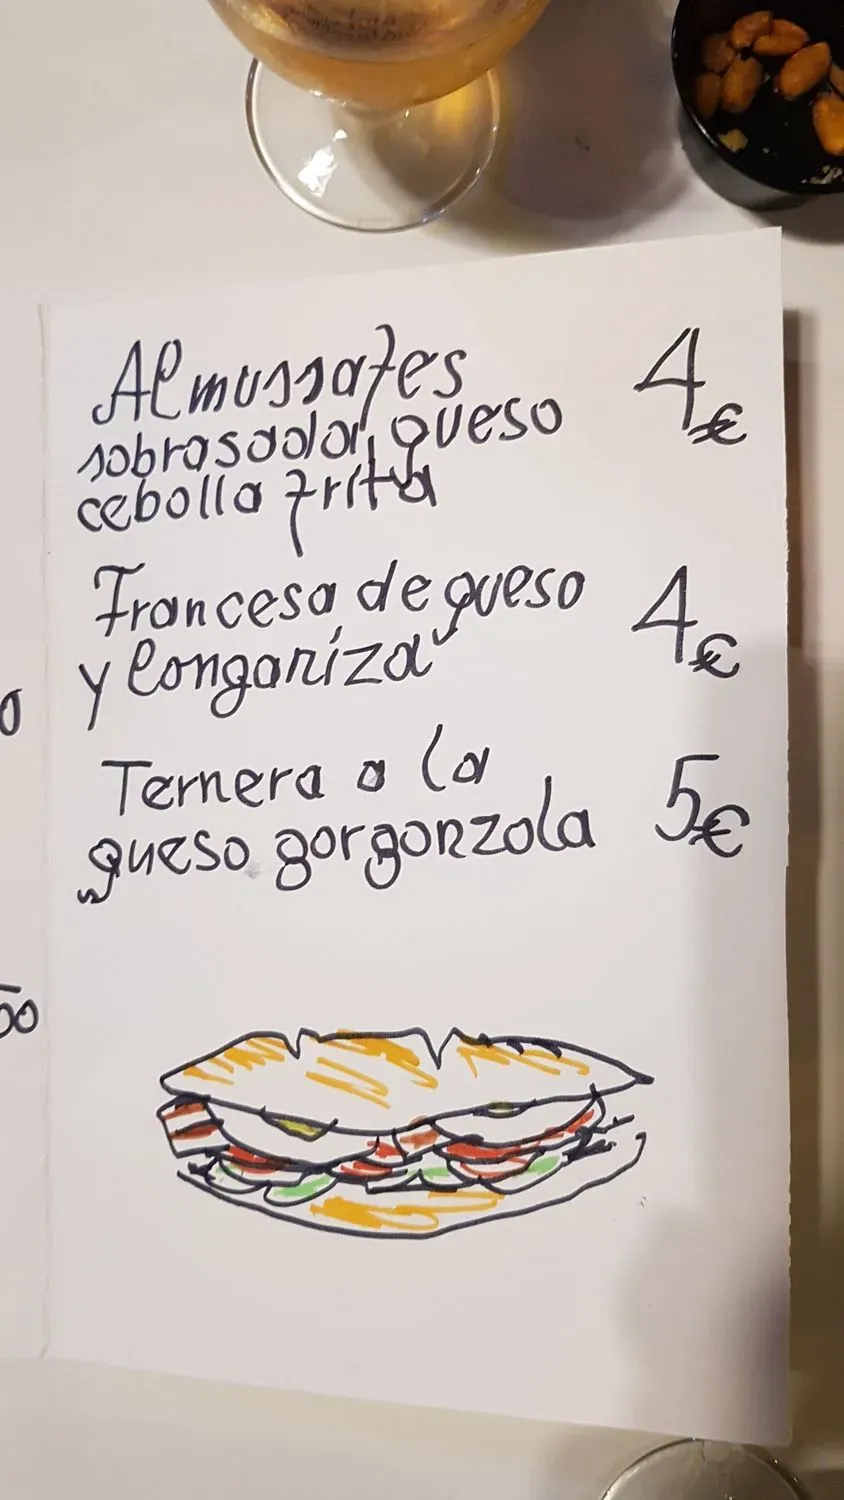 Almussafes 4€
sobrasada, queso
cebolla frita
Francesa de queso 4€
y longaniza
Ternera a la 5€
queso gorgonzola